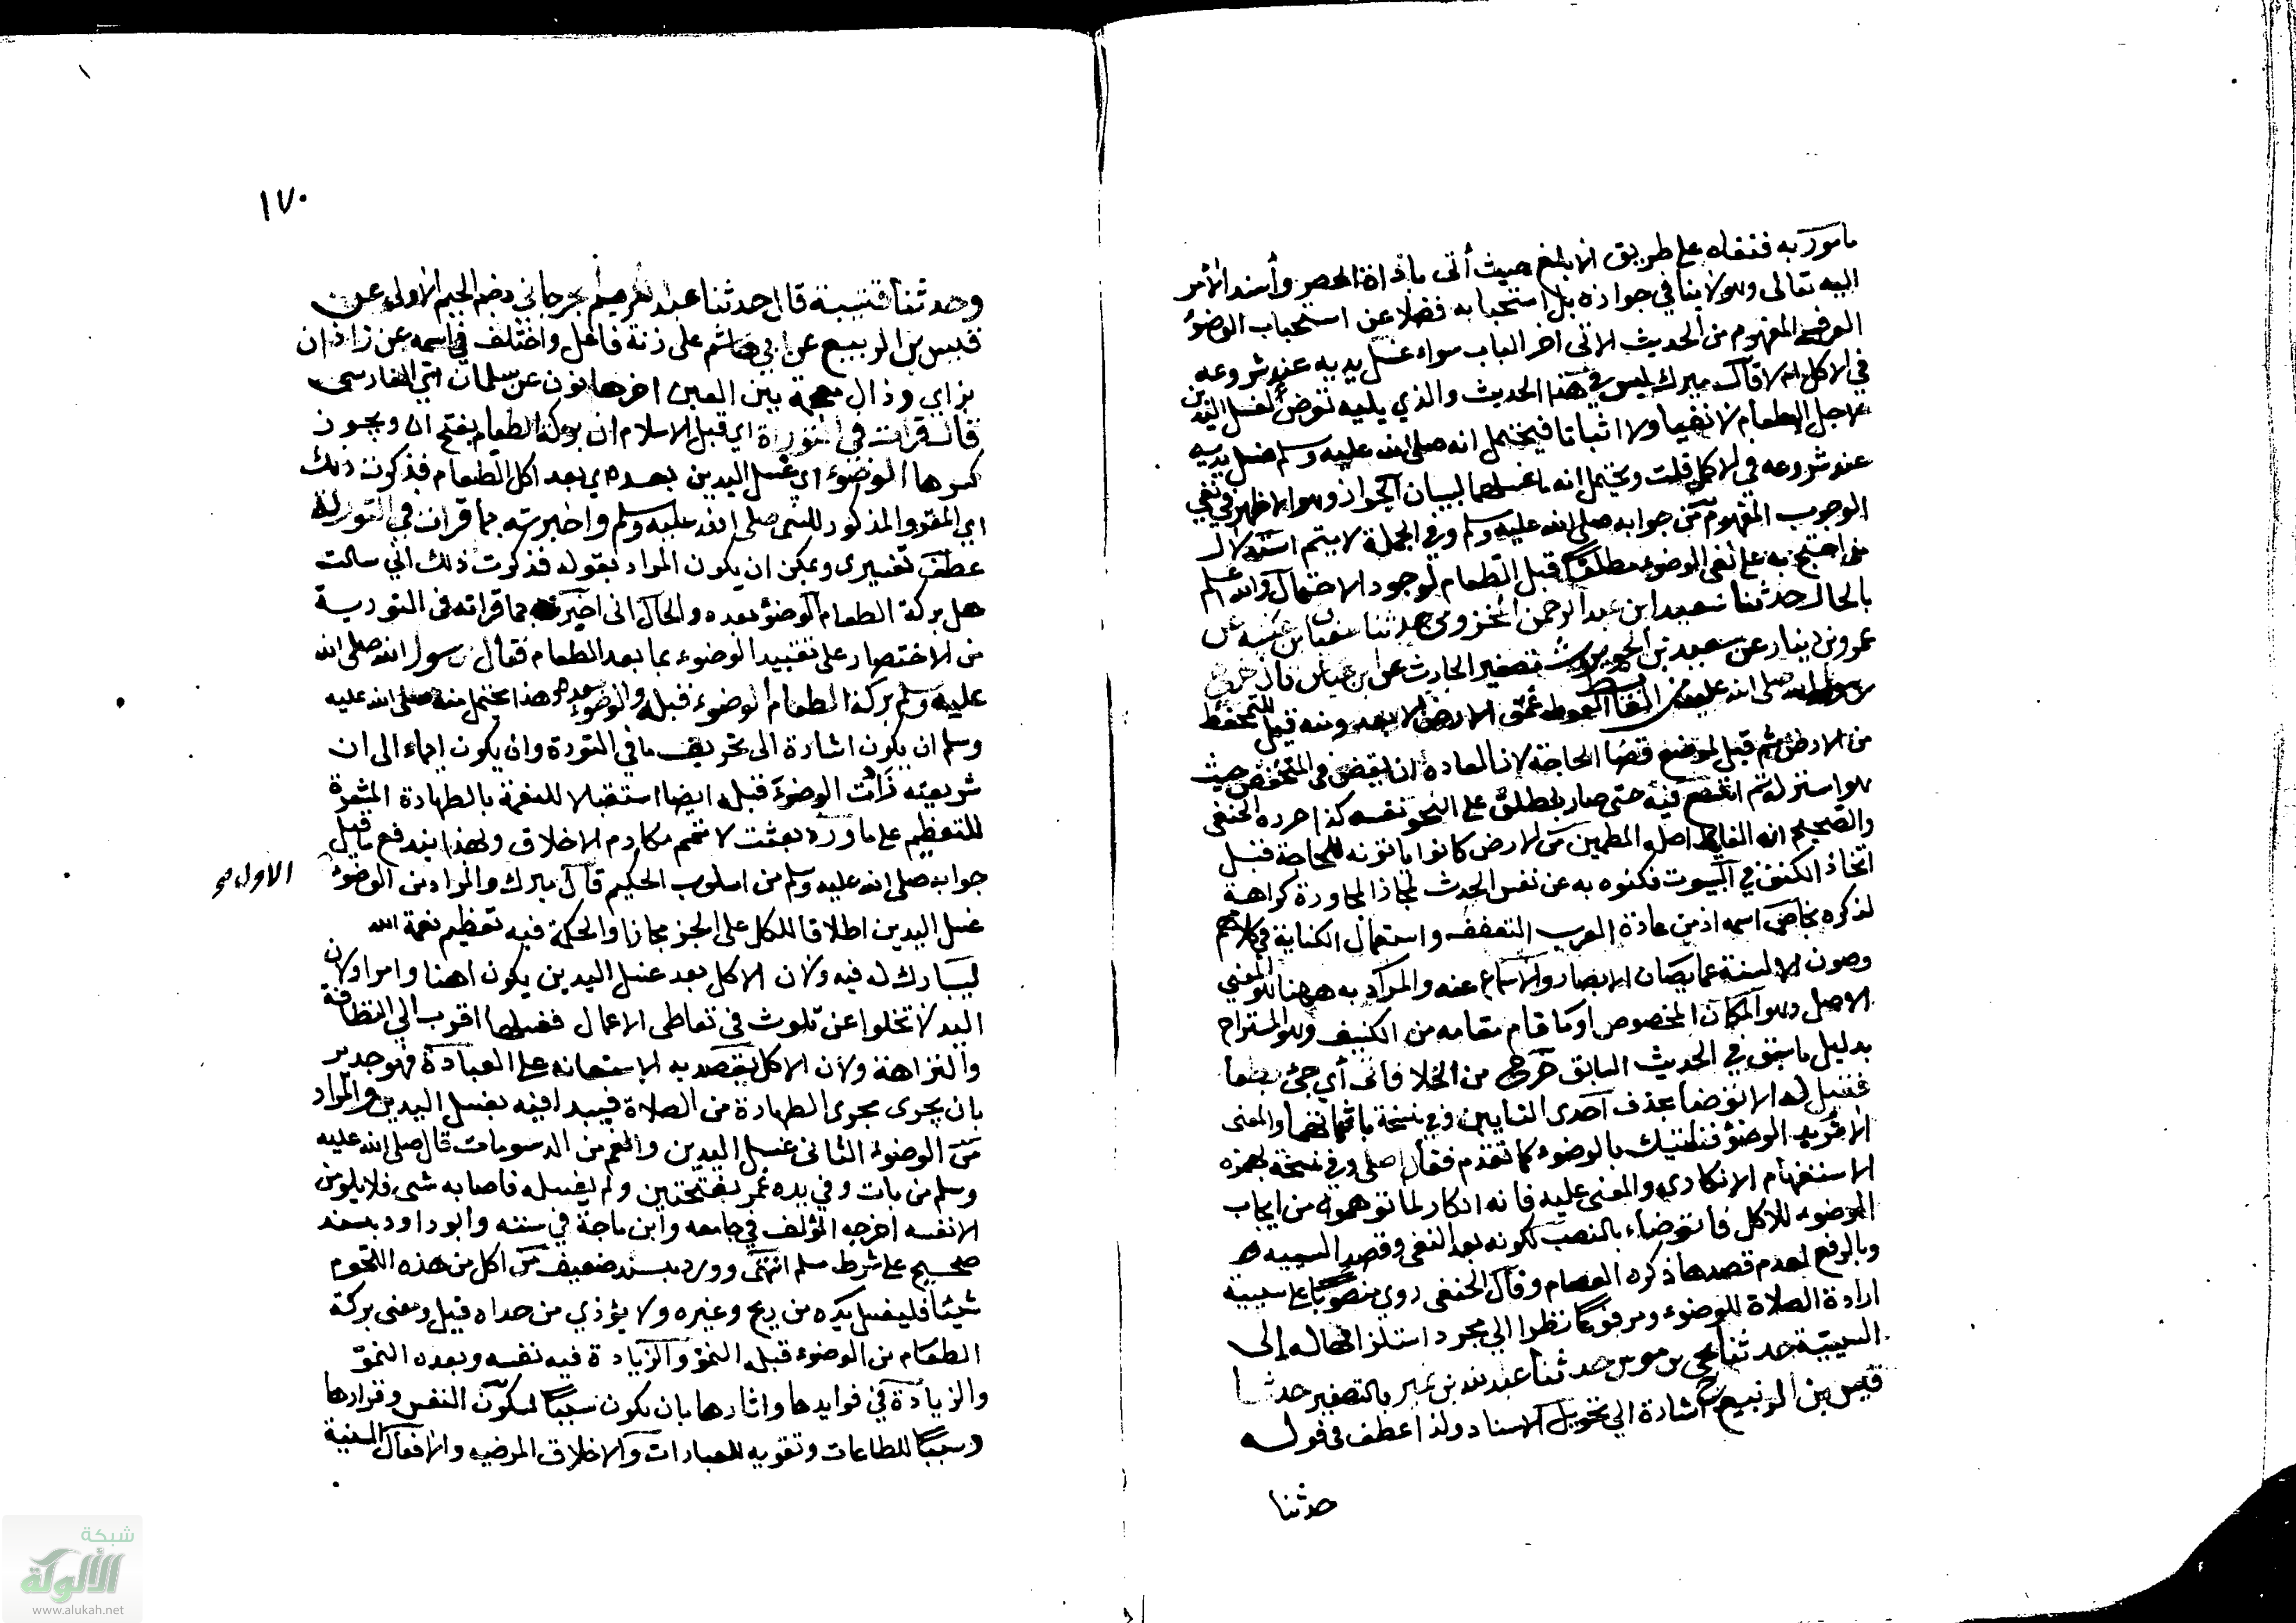 مامور به فنفاه على طريق الابلغ حيث أتى باداة الحصر وأسند الأمر
اليه تعالى وهو لا ينافي جوازه بل استحبابه فضلا عن استحباب الوضوء
العرفي المفهوم من الحديث الاتي اخر الباب سواء غسل يديه عند شروعه
في الاكل ام لا قال ميرك ليس في هذا الحديث والذي يليه تعرض لغسل اليدين
لاجل الطعام لا نفيا ولا اثباتا فيحتمل انه صلى الله عليه وسلم غسل يديه
عند شروعه في الاكل قلت ويحتمل انه ما غسلهما لبيان الجواز وهو الاظهر في نفي
الوجوب المفهوم من جوابه صلى الله عليه وسلم وفي الجملة لا يتم استدلال
من احتج به على نفي الوضوء مطلقا قبل الطعام لوجود الاحتمال والله اعلم
بالحال حدثنا سعيد ابن عبد الرحمن المخزومي حدثنا سفيان بن عيينة عن
عمرو بن دينار عن سعيد بن الحويرث تصغير الحارث عن ابن عباس قال خرج
رسول الله صلى الله عليه وسلم من الغائط الغوط عمق الارض الابعد ومنه قيل للمنخفظ
من الارض ثم قيل لموضع قضا الحاجة لان العادة ان يقضى في المنخفض حيث
هو استر له ثم اتسع فيه حتى صار يطلق على النجو نفسه كذا حرره الحنفي
والصحيح انه الغايط اصله المطمين من الارض كانوا ياتونه للحاجة قبل
اتخاذ الكنف في البيوت فكنوه به عن نفس الحدث مجازا لمجاورة كراهة
لذكره بخاص اسمه اذ من عادة العرب التعفف واستعمال الكناية في كلامهم
وصون الالسنة عما يصان الابصار والاسماع عنه والمراد به ههنا المعني
الاصل وهو المكان المخصوص او ما قام مقامه من الكنيف وهو المستراح
بدليل ما سبق في الحديث السابق خرج من الخلا فاتى أي جئ بطعام
فقيل له الا توضا بحذف احدى التايين وفي نسخة باثباتهما والمعنى
الا تريد الوضؤ فناتيك بالوضوء كما تقدم فقال اصلي وفي نسخة بهمزة
الاستفهام الانكاري والمعنى عليه فانه انكار لما توهموه من ايجاب
الوضوء للاكل فاتوضاء بالنصب لكونه بعد النفي وقصد السببية
وبالرفع لعدم قصدها ذكره العصام وقال الحنفي روي منصوبا على سببية
ارادة الصلاة للوضوء ومرفوعا نظرا الي مجرد استلزامها له إلى
السببية حدثنا يحيى بن موسى حدثنا عبد الله بن نمير بالتصغير حدثنا
قيس بن الربيع ح اشارة الي تحويل الاسناد ولذا عطف في قوله
حدثنا
١٧٠
وحدثنا قتيبة قال حدثنا عبد الكريم الجرجاني بضم الجيم الاولى عن
قيس بن الربيع عن ابي هاشم على زنة فاعل واختلف في اسمه عن زاذان
بزاي وذال معجمة بين العين اخرها نون عن سلمان اي الفارسي
قال قرات في التوراة اي قبل الاسلام ان بركة الطعام بفتح ان ويجوز
كسرها الوضوء اي غسل اليدين بعده اي بعد اكل الطعام فذكرت ذلك
اي المقرو المذكور للنبي صلى الله عليه وسلم واخبرته بما قرات في التوراة
عطف تفسيري ويمكن ان يكون المراد بقوله فذكرت ذلك اني سالت
هل بركة الطعام الوضوء بعده والحال اني اخبرته بما قراته في التورية
من الاختصار على تقييد الوضوء بما بعد الطعام فقال رسول الله صلى الله
عليه وسلم بركة الطعام الوضوء قبله والوضوء بعده هذا يحتمل منه صلى الله عليه
وسلم ان يكون اشارة الى تحريف ما في التورة وان يكون ايماء الى ان
شريعته زادت الوضوء قبله ايضا استقبالا للنعمة بالطهارة المشعرة
للتعظيم على ما ورد بعثت لاتمم مكارم الاخلاق وبهذا يندفع ما قيل
جوابه صلى الله عليه وسلم من اسلوب الحكيم قال ميرك والمراد من الوضوء
الاول صح
غسل اليدين اطلاقا للكل على الجزء مجازا والحكمة فيه تعظيم نعمة الله
ليبارك له فيه ولان الاكل بعد غسل اليدين يكون اهنا وامرا ولان
اليد لا تخلوا عن تلوث في تعاطي الاعمال فغسلها اقرب الي النظافة
والنزاهة ولان الاكل يقصد به الاستعانة على العبادة فهو جدير
بان يجرى مجرى الطهارة من الصلاة فيبدا فيه بغسل اليدين والمراد
من الوضوء الثاني غسل اليدين والفم من الدسومات قال صلى الله عليه
وسلم من بات وفي يده غمر بفتحتين ولم يغسله فاصابه شي فلا يلومن
الا نفسه اخرجه المؤلف في جامعه وابن ماجة في سننه وابو داود بسند
صحيح على شرط مسلم انتهى وورد بسند ضعيف من اكل من هذه اللحوم
شيئا فليغسل يده من ريح وغيره ولا يؤذي من حداه قيل ومعنى بركة
الطعام من الوضوء قبله النمو والزيادة فيه نفسه وبعده النمو
والزيادة في فوايدها واثارها بان يكون سببا لسكون النفس وقرارها
وسببا للطاعات وتقويه للعبادات والاخلاق المرضيه والافعال السنية
شبكة
الألوكة
www.alukah.net